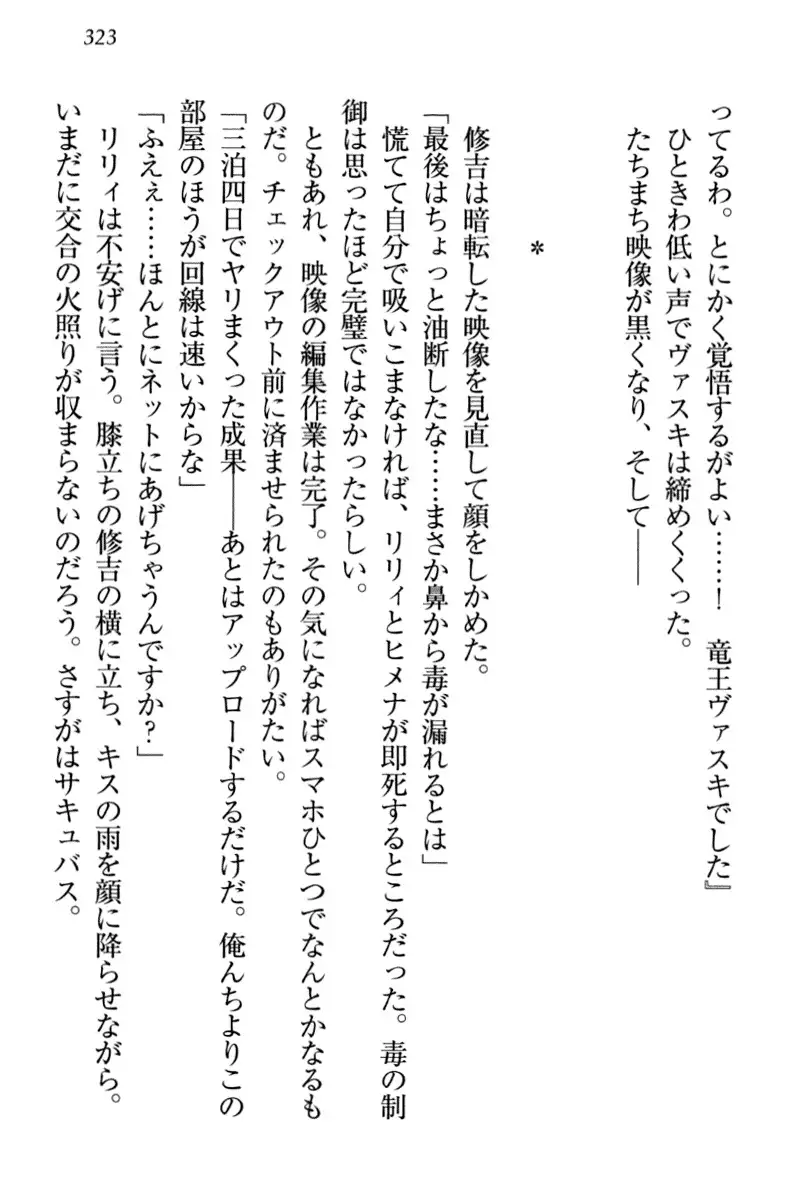 323
ってるわ。とにかく覚悟するがよい……！　竜王ヴァスキでした』
ひときわ低い声でヴァスキは締めくくった。
たちまち映像が黒くなり、そして――
＊
修吉は暗転した映像を見直して顔をしかめた。
「最後はちょっと油断したな……まさか鼻から毒が漏れるとは」
慌てて自分で吸いこまなければ、リリィとヒメナが即死するところだった。毒の制
御は思ったほど完璧ではなかったらしい。
ともあれ、映像の編集作業は完了。その気になればスマホひとつでなんとかなるも
のだ。チェックアウト前に済ませられたのもありがたい。
「三泊四日でヤリまくった成果――あとはアップロードするだけだ。俺んちよりこの
部屋のほうが回線は速いからな」
「ふえぇ……ほんとにネットにあげちゃうんですか？」
リリィは不安げに言う。膝立ちの修吉の横に立ち、キスの雨を顔に降らせながら。
いまだに交合の火照りが収まらないのだろう。さすがはサキュバス。